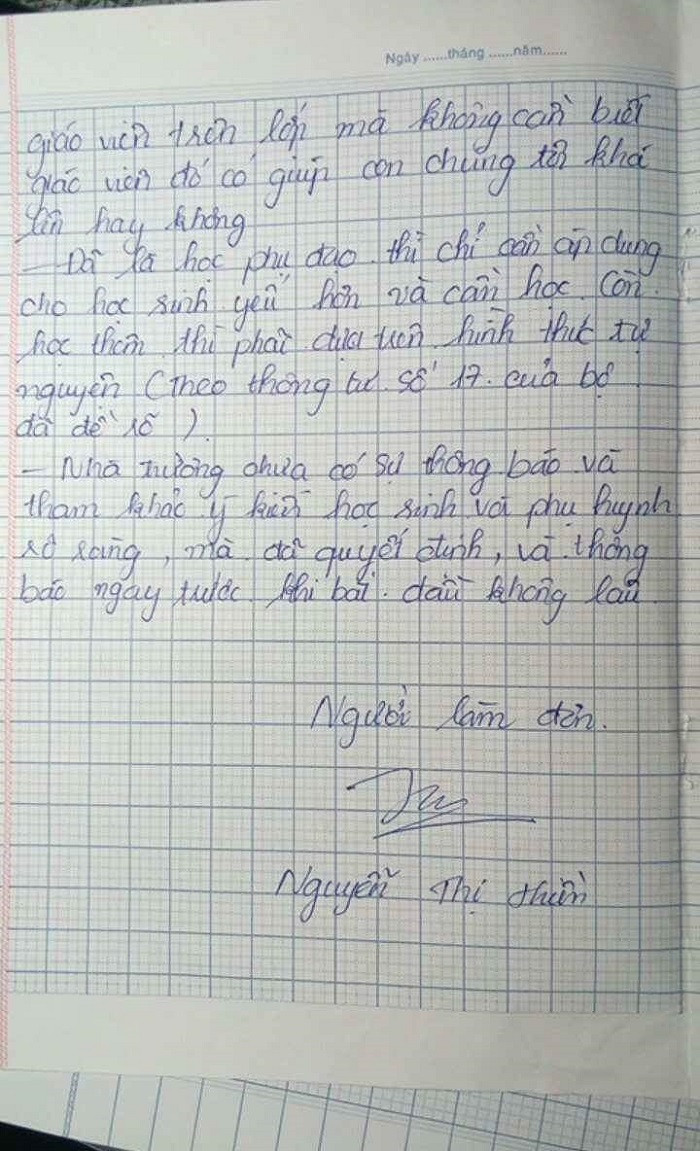 Ngày ......tháng ......năm......
giáo viên trên lớp mà không cần biết
giáo viên đó có giúp con chúng tôi khá
lên hay không
- Đã là học phụ đạo thì chỉ cần áp dụng
cho học sinh yếu hơn và cần học. Còn
học thêm thì phải dựa trên hình thức tự
nguyện (Theo thông tư số 17 của bộ
đã để rõ ).
- Nhà trường chưa có sự thông báo và
tham khảo ý kiến học sinh với phụ huynh
rõ ràng, mà đã quyết định, và thông
báo ngay trước khi bắt đầu không lâu
Người làm đơn.
Nguyễn Thị